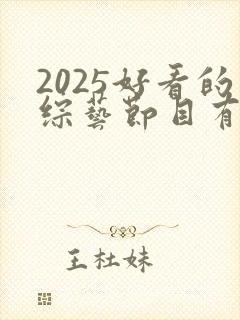 2025好看的
综藝节目有
王杜妹